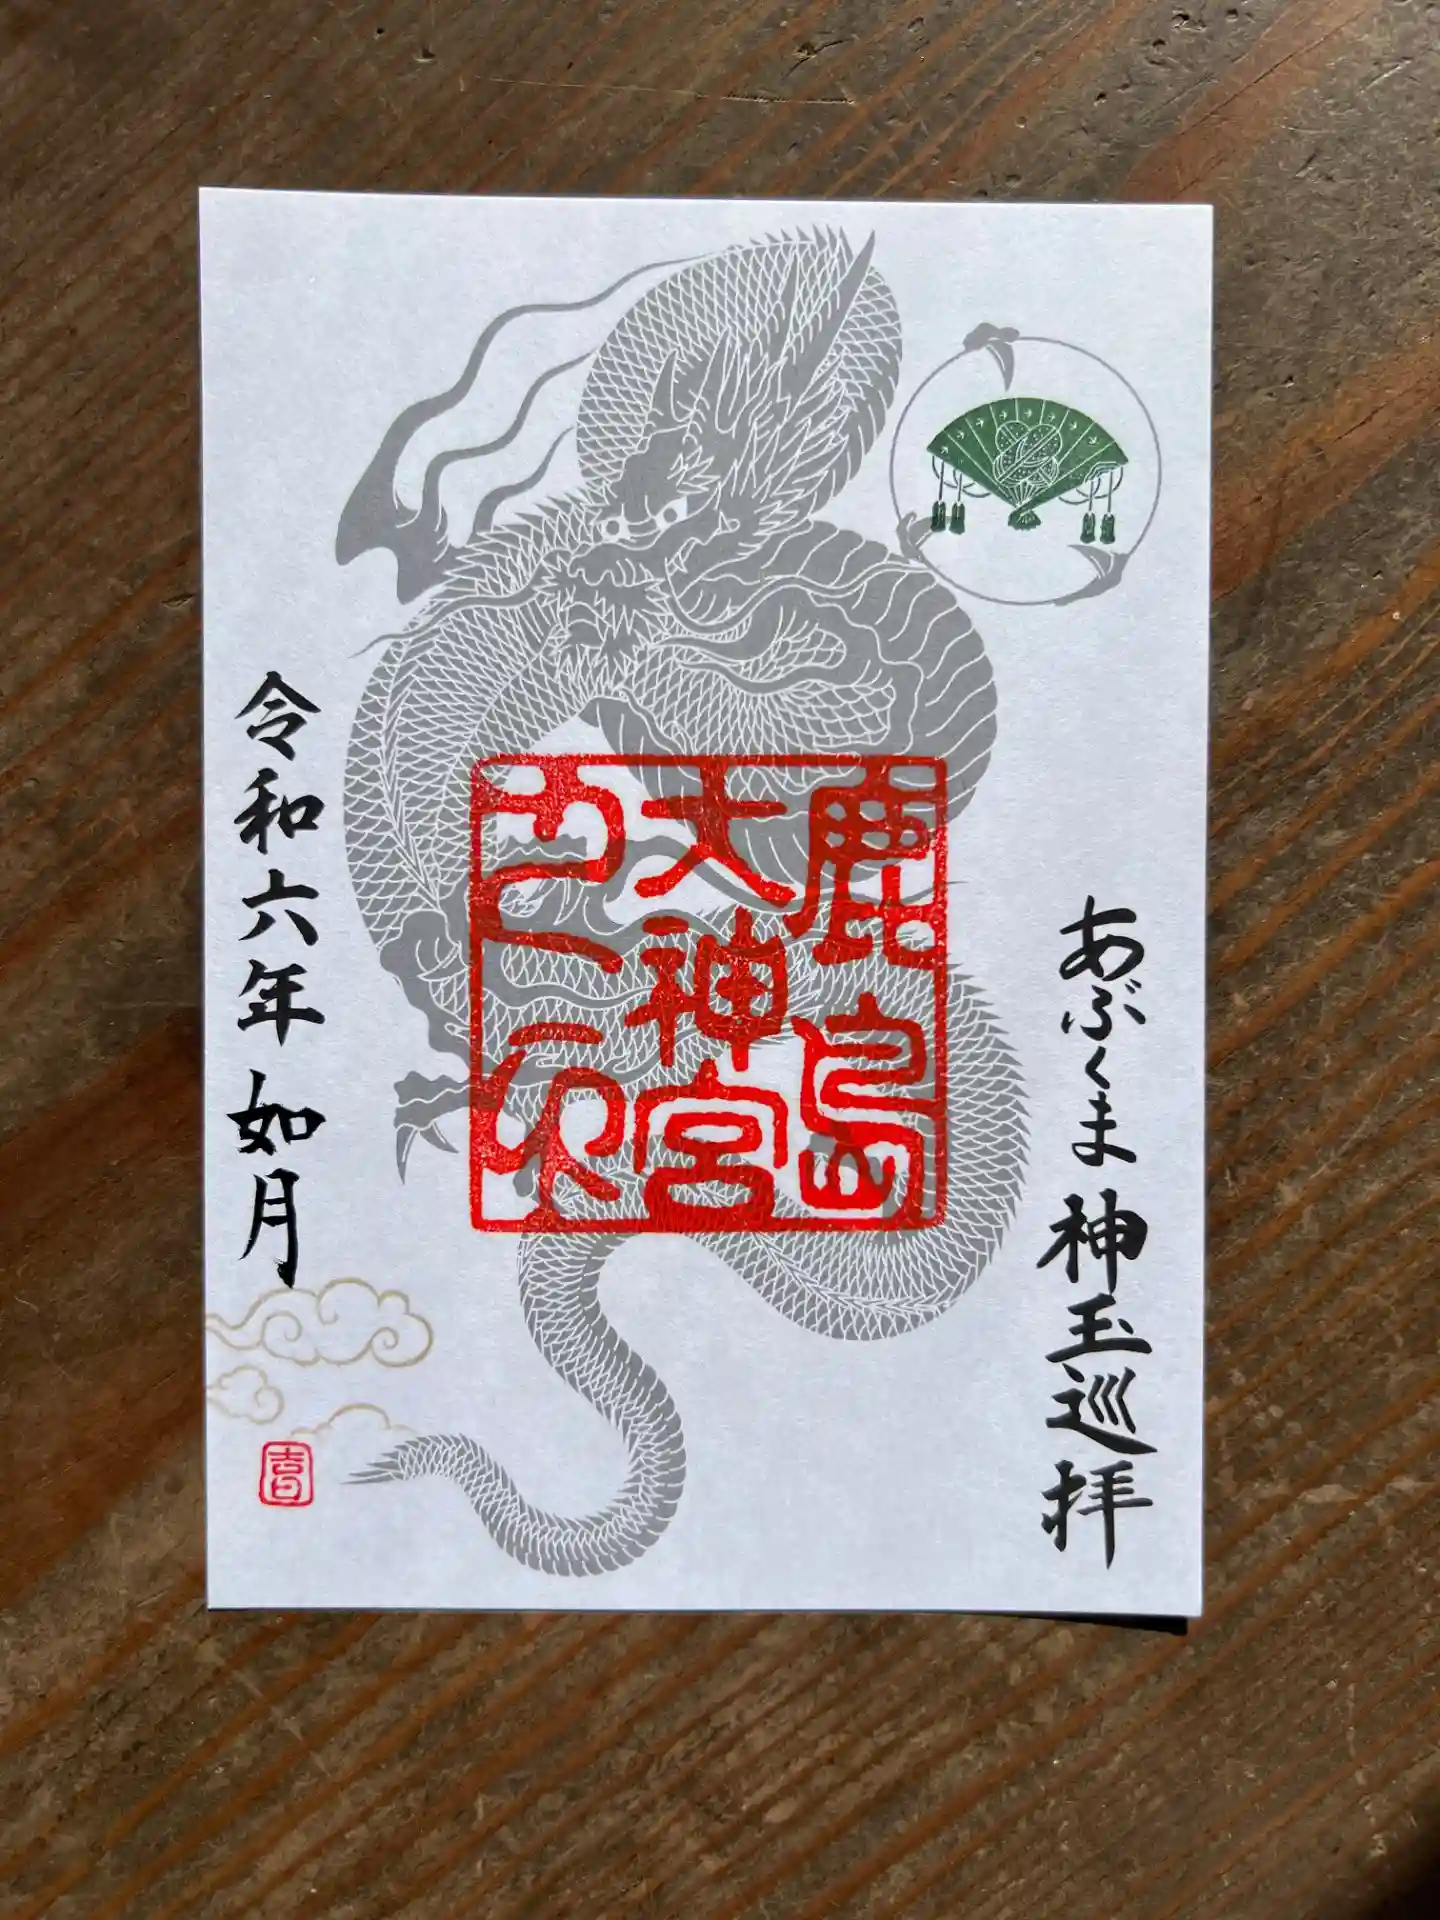 あぶくま神玉巡拝
鹿島
大神宮
之印
令和六年 如月